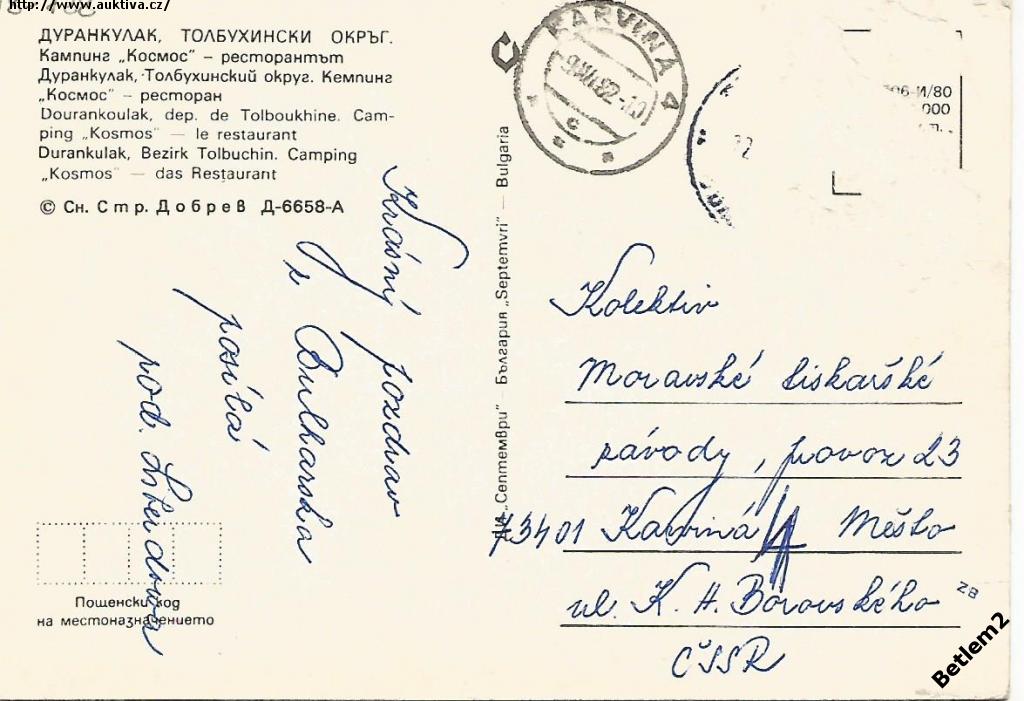 http://www.auktiva.cz/
ДУРАНКУЛАК, ТОЛБУХИНСКИ ОКРЪГ.
Кампинг „Космос" – ресторантът
Дуранкулак, Толбухинский округ. Кемпинг
„Космос" – ресторан
Dourankoulak, dep. de Tolboukhine. Cam-
ping „Kosmos" — le restaurant
Durankulak, Bezirk Tolbuchin. Camping
„Kosmos" — das Restaurant
© Сн. Стр. Добрев Д-6658-А
Krásný pozdrav
z Bulharska
posílá
pod.
Пощенски код
на местоназначението
ДИ „Септември" – България „Septemvri" – Bulgaria
KARVINÁ 4
06-И/80
000
Kolektiv
Moravské tiskařské
závody, provoz 23
73401 Karviná 4 Město
ul. K. H. Borovského
ČSSR
Betlem2